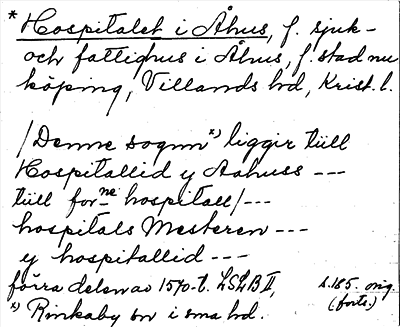 * Hospitalet i Åhus, f. sjuk-
och fattighus i Åhus, f. stad nu
köping, Villands hd, Krist. l.
/Denne sognn *) ligger tiill
Hospitallid y Aahuss ---
tiill forne hospitall/ ---
hospitals Mesteren ---
y hospitallid ---
förra delen av 1570-t. LSLB II, s. 185. orig.
(forts.)
*) Rinkaby sn i sma hd.